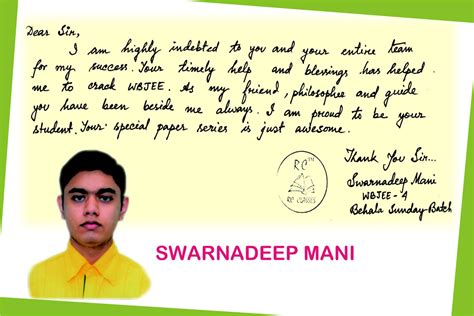 Dear Sir,
I am highly indebted to you and your entire team
for my success. Your timely help and blessings has helped
me to crack WBJEE. As my friend, philosopher and guide
you have been beside me always. I am proud to be your
student. Your special paper series is just awesome.
Thank You Sir...
Swarnadeep Mani
WBJEE-4
Behala Sunday-Batch
RC™
RC CLASSES
SWARNADEEP MANI